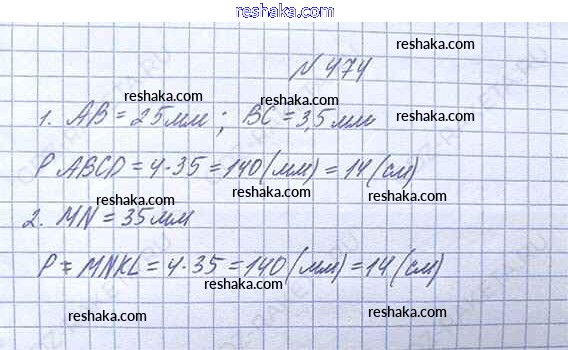 reshaka.com
N 474
1. AB = 25 мм ; BC = 3,5 мм
P ABCD = 4·35 = 140 (мм) = 14 (см)
2. MN = 35 мм
P = MNKL = 4·35 = 140 (мм) = 14 (см)
reshaka.com
reshaka.com
reshaka.com
reshaka.com
reshaka.com
reshaka.com
reshaka.com
reshaka.com
reshaka.com
reshaka.com
reshaka.com
reshaka.com